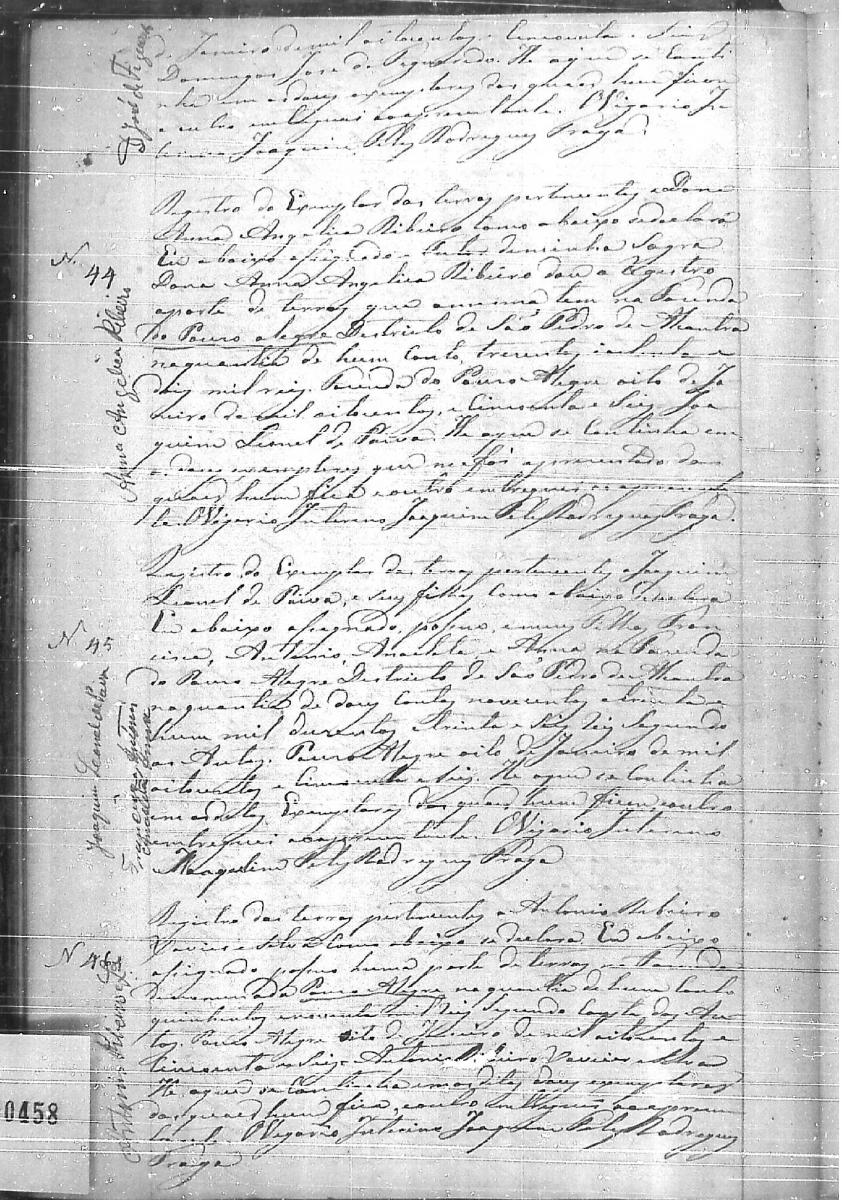 de Janeiro de mil oitocentos e Cincoenta e Seis
Domingos José de Figueiredo. He o que se Conti
nha em os dous exemplares dos quaes hum ficou
e outro entreguei ao apresentante. O Vigario In
terino Joaquim Felis Rodrigues Braga.
D José de Figueiredo
Registro do Exemplar das terras pertencentes a Dona
Anna Angelica Ribeiro como abaixo se declara
Eu abaixo assignado e Tutor de minha Sogra
Dona Anna Angelica Ribeiro dou a Registro
a parte de terras que a mesma tem na Fazenda
do Pouzo alegre Districto de São Pedro de Alcantra
na quantia de hum Conto, trezentos e oitenta e
dois mil reis. Fazenda do Pouzo Alegre oito de Ja
neiro de mil oitocentos, e Cincoenta e Seis Joa
quim Leonel de Paiva. He o que se Continha em
os dous exemplares que me foi apresentado dos
quaes hum fica e outro entreguei ao apresentan
te. O Vigario Interino Joaquim Felis Rodrigues Braga.
N. 44
Anna Angelica Ribeiro
Registro do Exemplar das terras pertencentes a Joaquim
Leonel de Paiva, e seus filhos como abaixo se declara
Eu abaixo assignado, possuo, e meus Filhos Fran
cisco, Antonio, Anacleta e Anna na Fazenda
do Pouzo Alegre Districto de São Pedro de Alcantra
na quantia de dous Contos novecentos e trinta e
hum mil duzentos e trinta e seis reis Segundo
os Autos. Pouzo Alegre oito de Janeiro de mil
oitocentos e Cincoenta e Seis. He o que se Continha
em os ditos Exemplares dos quaes hum ficou e outro
entreguei ao apresentante. O Vigario Interino
Joaquim Felis Rodrigues Braga
N 45
Joaquim Leonel de Paiva
Francisco Antonio
Anacleta Anna
Registro das terras pertencentes a Antonio Ribeiro
Xavier e Silva como abaixo se declara. Eu abaixo
assignado possuo huma parte de terras na Fazenda
denominada Pouzo Alegre na quantia de hum Conto
quinhentos e noventa mil Reis Segundo Consta dos Au
tos. Pouzo Alegre oito de Janeiro de mil oitocentos e
Cincoenta e Seis Antonio Ribeiro Xavier e Silva
He o que se Continha em os ditos dous exemplares
dos quaes hum fica, e outro entreguei ao apresen
tante. O Vigario Interino Joaquim Felis Rodrigues
Braga
N 46
Antonio Ribeiro
0458